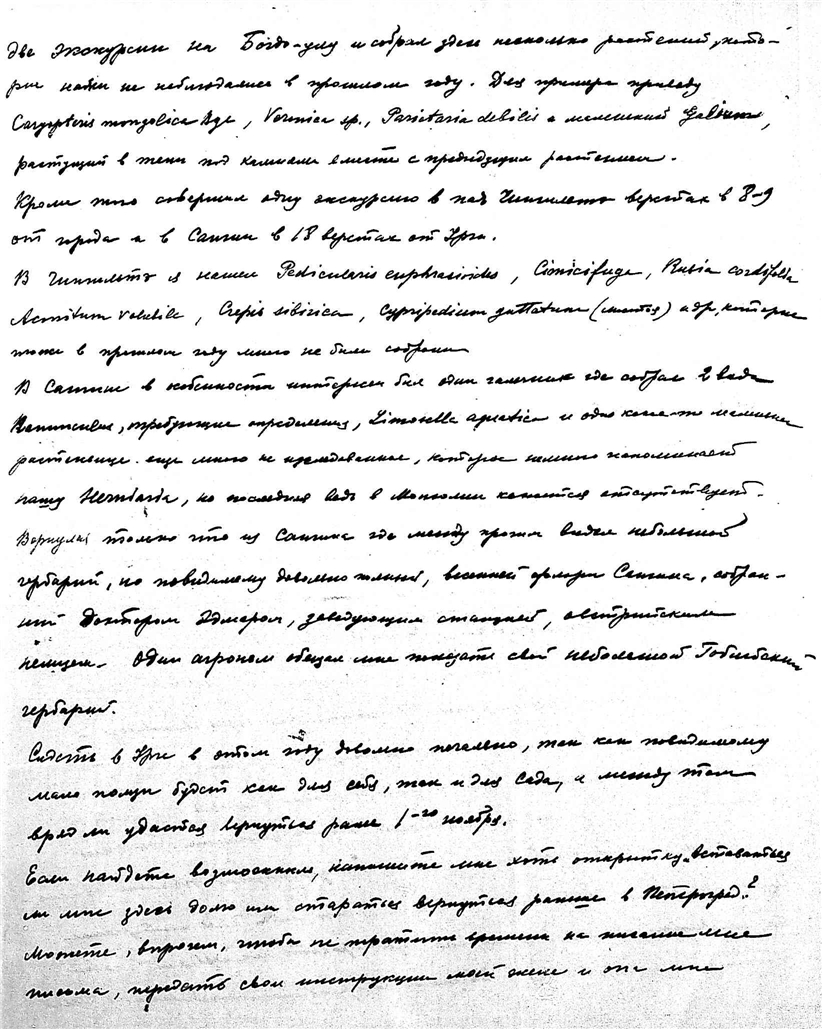 две экскурсии на Богдо-улу и собрал здесь несколько растений, кото-
рые нами не наблюдались в прошлом году. Для примера приведу
Caryopteris mongolica Bge, Veronica sp., Parietaria debilis и маленький Galium,
растущий в тени под камнями вместе с предыдущим растением.
Кроме того совершил одну экскурсию в падь Чингильту верстах в 8-9
от города и в Сангин в 18 верстах от Урги.
В Чингильту я нашел Pedicularis euphrasioides, Cimicifuga, Rubia cordifolia
Aconitum volubile, Crepis sibirica, Cypripedium guttatum (листья) и др, которые
тоже в прошлом году мною не были собраны
В Сангине в особенности интересен был один галечник где собрал 2 вида
Ranunculus, требующие определения, Limosella aquatica и одно какое-то маленькое
растеньице еще мною не исследованное, которое немного напоминает
нашу Herniaria, но последняя ведь в Монголии кажется отсутствует.
Вернулся только что из Сангина где между прочим видел небольшой
гербарий, но повидимому довольно полный, весенней флоры Сангина, собран-
ный Доктором, заведующим станцией, австрийским
немцем. Один агроном обещал мне показать свой небольшой Гобийский
гербарий.
Сидеть в Урге в этом году довольно печально, так как повидимому
мало пользы будет как для себя, так и для Сада, а между тем
вряд ли удастся вернуться ранее 1-го ноября.
Если найдете возможным, напишите мне хоть открытку оставаться
ли мне здесь долго или стараться вернуться раньше в Петроград?
Можете, впрочем, чтобы не тратить времени на писание мне
письма, передать свои инструкции моей жене и она мне